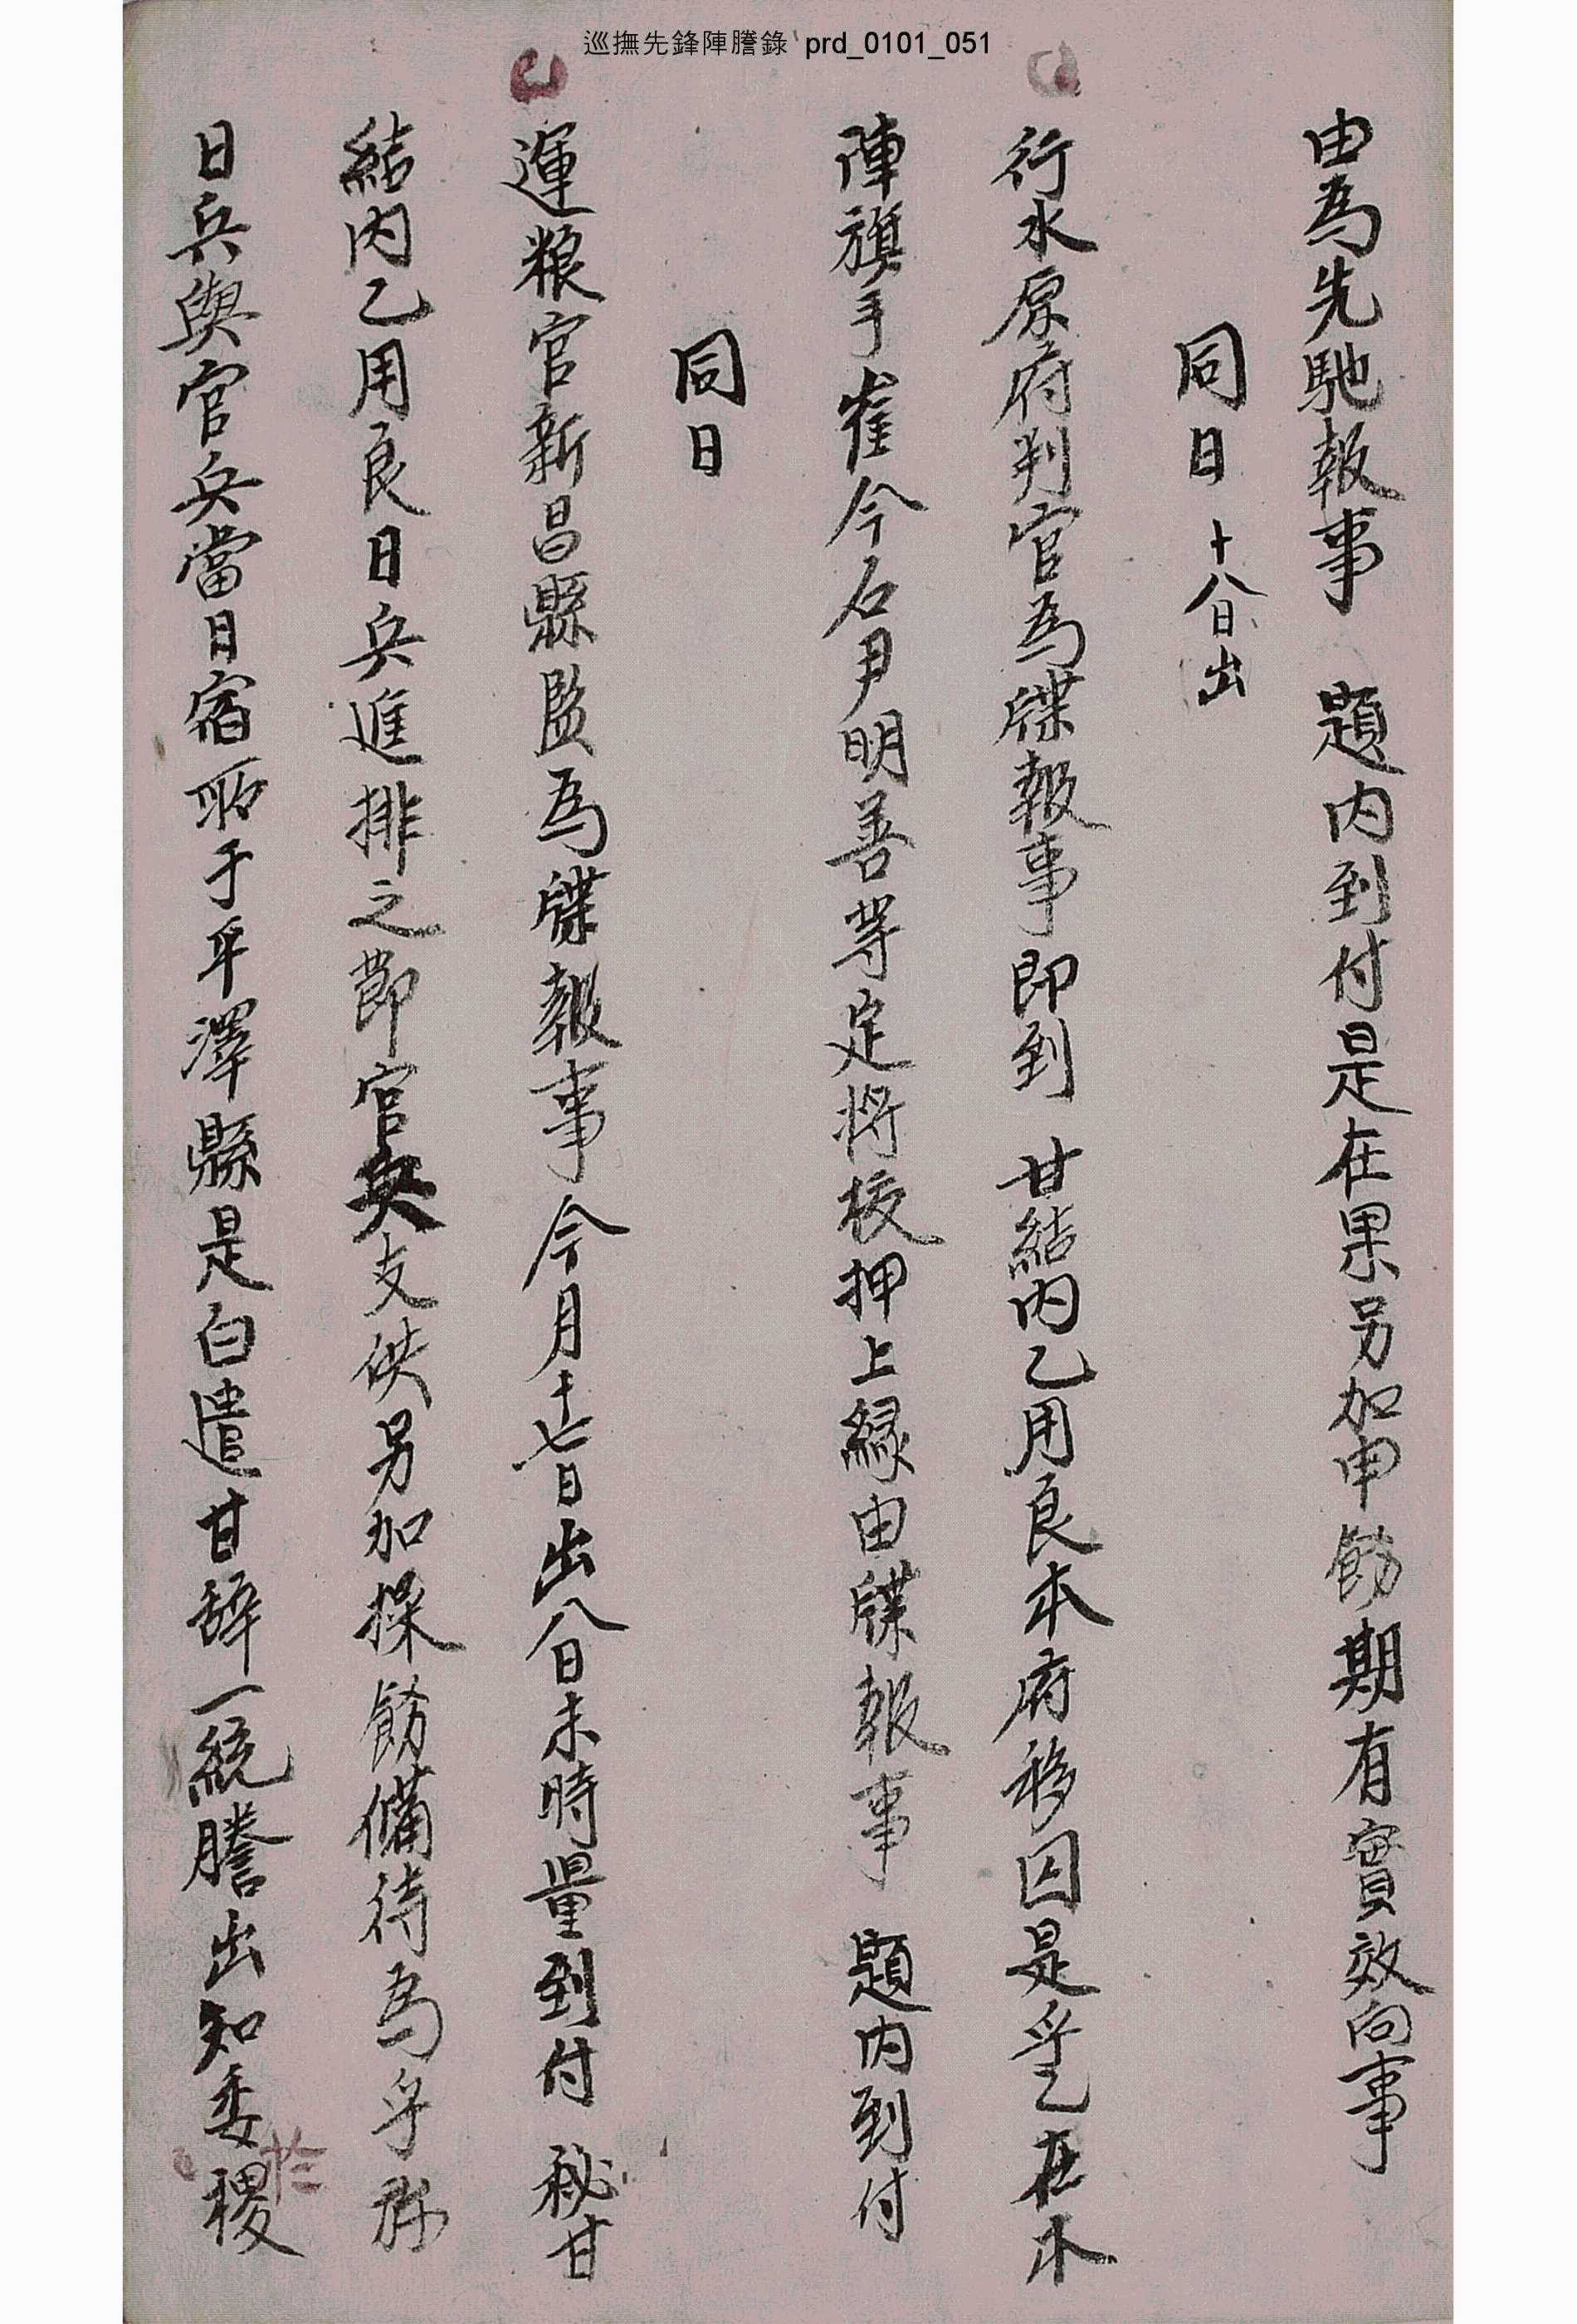 巡撫先鋒陣謄錄 prd_0101_051
由爲先馳報事 題內到付是在果另加申飭期有實效向事
同日 十八日出
行水原府判官爲牒報事卽到 甘結內乙用良本府移囚是乎乙在本
陣旗手崔今石尹明善等定將校押上緣由牒報事 題內到付
同日
運粮官新昌縣監爲牒報事今月十七日出八日未時量到付 秘甘
結內乙用良日兵進排之節官兵支供另加操飭備待爲乎㫆
日兵與官兵當日宿所于平澤縣是白遣甘辭一統謄出知委稷